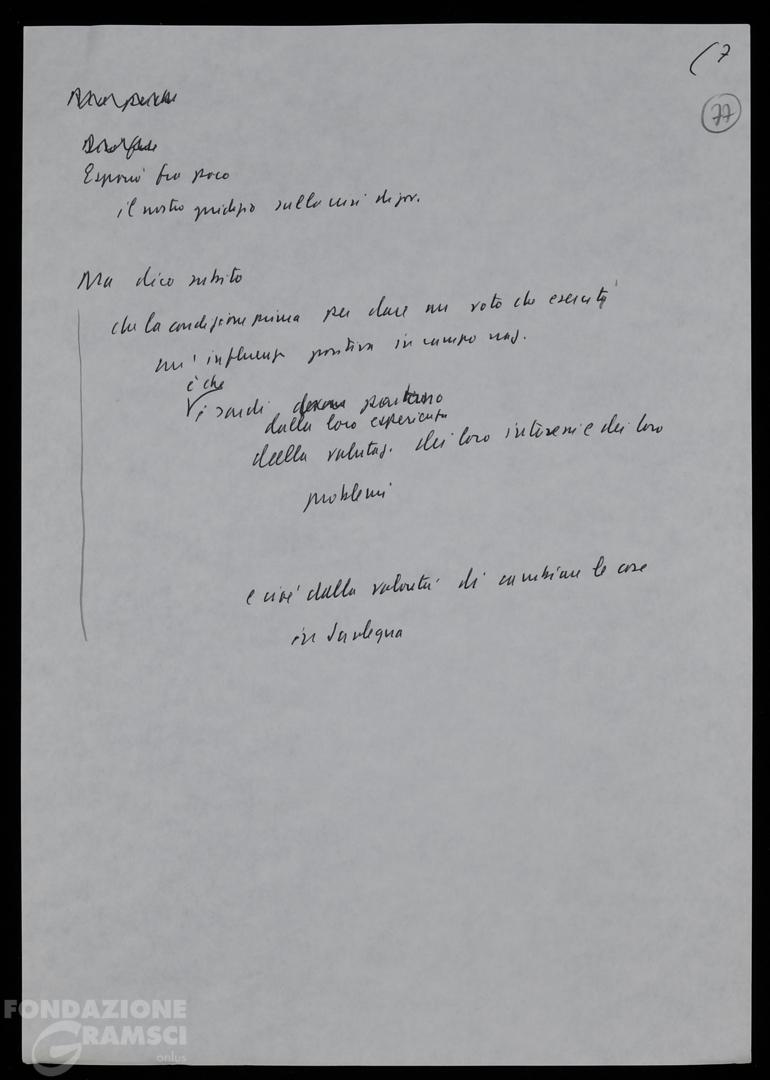 (7
77
Esporrò fra poco
il nostro giudizio sulla crisi di gov.
Ma dico subito
che la condizione prima per dare un voto che eserciti
un'influenza positiva in campo naz.
è che
i sardi partano
dalla loro esperienza
della valutaz. dei loro interessi e dei loro
problemi
e cioè dalla volontà di cambiare le cose
in Sardegna
FONDAZIONE
GRAMSCI
onlus